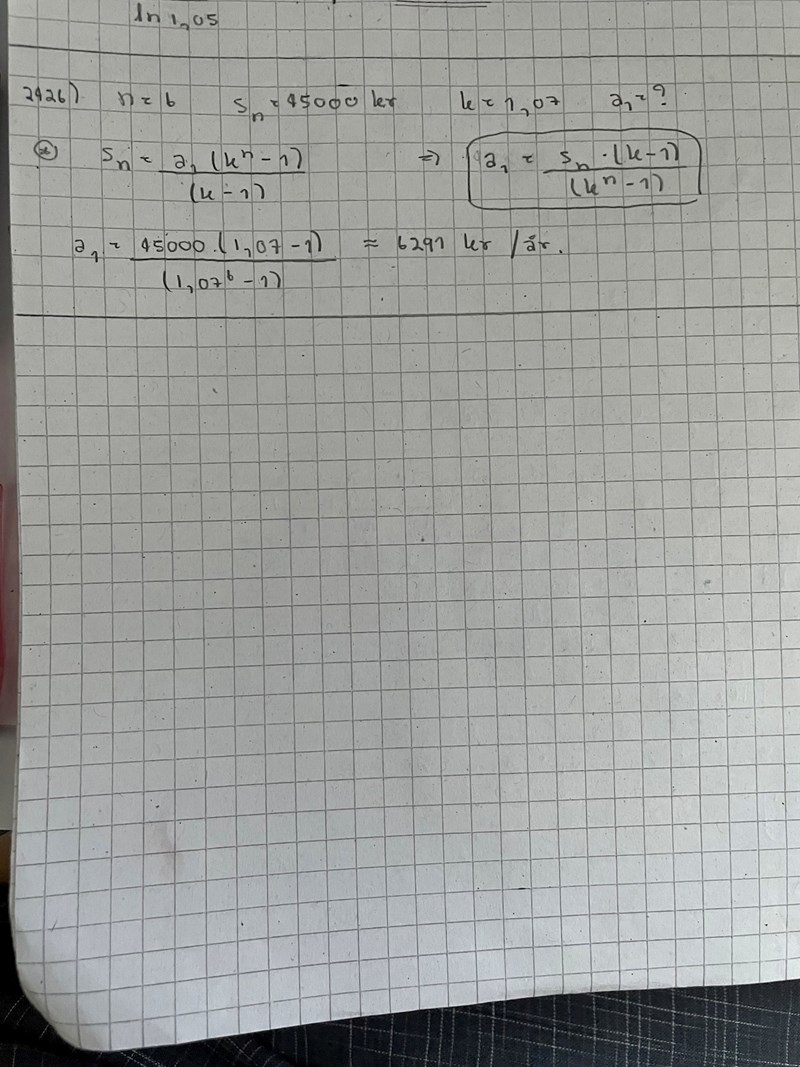 ln 1,05
2426) n = 6 Sn = 45000 kr k = 1,07 a1 = ?
* Sn = a1 (k^n - 1) / (k - 1) => a1 = Sn · (k - 1) / (k^n - 1)
a1 = 45000 · (1,07 - 1) / (1,07^6 - 1) ≈ 6291 kr / år.